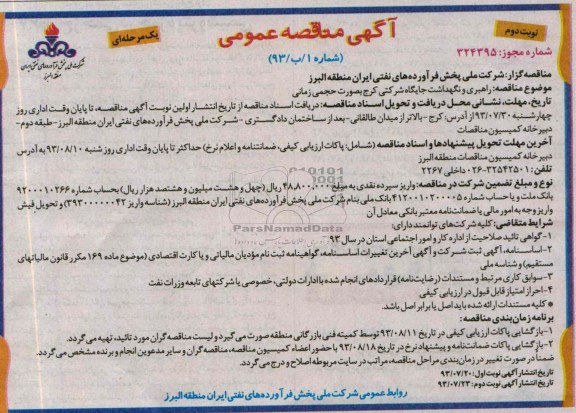 نوبت دوم
آگهی مناقصه عمومی
یک مرحله‌ای
شماره مجوز: ۳۲۴۳۹۵
(شماره ۱/ب/۹۳)
شرکت ملی پخش فرآورده‌های نفتی ایران
منطقه البرز
مناقصه گزار: شرکت ملی پخش فرآورده‌های نفتی ایران منطقه البرز
موضوع مناقصه: راهبری و نگهداشت جایگاه شرکتی کرج بصورت حجمی زمانی
تاریخ، مهلت، نشانی محل دریافت و تحویل اسناد مناقصه: دریافت اسناد مناقصه از تاریخ انتشار اولین نوبت آگهی مناقصه، تا پایان وقت اداری روز
چهارشنبه ۹۳/۰۷/۳۰ از آدرس: کرج - بالاتر از میدان طالقانی - بعد از ساختمان دادگستری - شرکت ملی پخش فرآورده‌های نفتی ایران منطقه البرز - طبقه دوم -
دبیرخانه کمیسیون مناقصات
آخرین مهلت تحویل پیشنهادها و اسناد مناقصه (شامل: پاکات ارزیابی کیفی، ضمانتنامه و اعلام نرخ) حداکثر تا پایان وقت اداری روز شنبه ۹۳/۰۸/۱۰ به آدرس
دبیرخانه کمیسیون مناقصات منطقه البرز
تلفن: ۳۲۵۴۲۵۰۱-۰۲۶ داخلی ۲۲۶۷
نوع و مبلغ تضمین شرکت در مناقصه: واریز سپرده نقدی به مبلغ ۴۸،۸۰۰،۰۰۰ ریال (چهل و هشت میلیون و هشتصد هزار ریال) بحساب شماره ۹۲۰۰۰۱۰۲۶۶
بانک ملت و یا حساب شماره ۴۱۲۰۰۱۰۲۰۰۰۰۵ بانک ملی بنام شرکت ملی پخش فرآورده‌های نفتی ایران منطقه البرز (شناسه واریز ۳۹۳۰۰۰۰۰۰۴۲) و تحویل فیش
واریز وجه به امور مالی یا ضمانت‌نامه معتبر بانکی معادل آن
شرایط متقاضی: کلیه شرکت‌های توانمند دارای:
۱- گواهی تائید صلاحیت از اداره کار و امور اجتماعی استان در سال ۹۳
۲- اساسنامه، آگهی ثبت شرکت و آگهی آخرین تغییرات اساسنامه، گواهینامه ثبت نام مؤدیان مالیاتی و یا کارت اقتصادی (موضوع ماده ۱۶۹ مکرر قانون مالیاتهای
مستقیم) و شناسه ملی
۳- سوابق کاری مرتبط و مستندات (رضایت‌نامه) قراردادهای انجام شده با ادارات دولتی، خصوصی یا شرکتهای تابعه وزارت نفت
۴- احراز امتیاز قابل قبول در ارزیابی کیفی
* کلیه مستندات ارائه شده باید اصل یا برابر اصل باشد.
برنامه زمان‌بندی مناقصه:
۱- بازگشایی پاکات ارزیابی کیفی در تاریخ ۹۳/۰۸/۱۱ توسط کمیته فنی بازرگانی منطقه صورت می‌گیرد و لیست مناقصه گران مورد تائید، تهیه می‌گردد.
۲- بازگشایی پاکات ضمانت‌نامه و پیشنهاد نرخ در تاریخ ۹۳/۰۸/۱۸ با حضور اعضاء کمیسیون مناقصه، مناقصه گران و سایر مدعوین انجام و برنده مشخص می‌گردد.
ضمناً در صورت تغییر در زمان‌بندی مراحل مناقصه، مراتب در سایت مربوطه اصلاح و درج می‌گردد.
تاریخ انتشار آگهی نوبت اول: ۹۳/۰۷/۲۰
تاریخ انتشار آگهی نوبت دوم: ۹۳/۰۷/۲۳
روابط عمومی شرکت ملی پخش فرآورده‌های نفتی ایران منطقه البرز
ParsNamadData